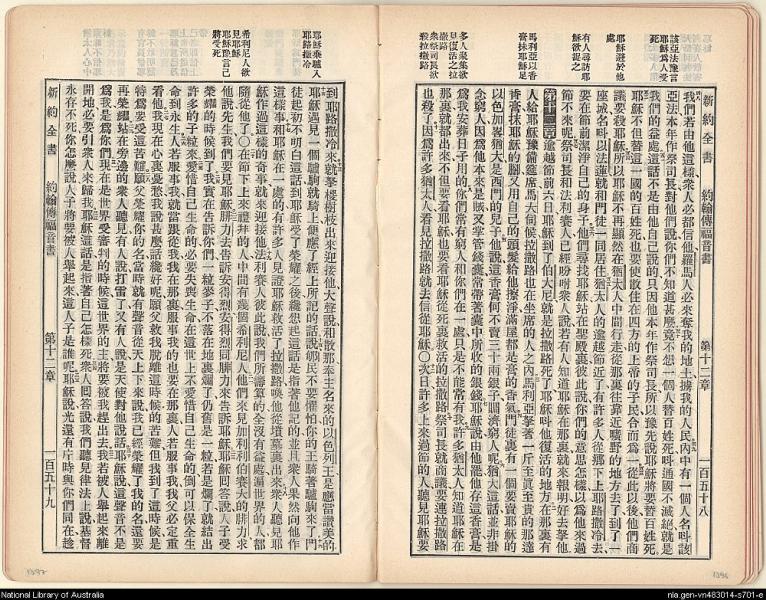 該亞法豫言
耶穌爲人受
死
耶穌避於他
處
有人尋訪耶
穌欲捉之
馬利亞以香
膏抹耶穌足
多人聚集欲
見復活之拉
衆祭司長欲
殺拉撒路
新約全書 約翰傳福音書 第十二章 一百五十八
我們若由他這樣衆人必都信他羅馬人必來奪我的地土擄我的人民內中有一個人名叫該
亞法本年作祭司長對他們說你們不知道甚麽竟不想一個人替百姓死呌通國不滅絕就是
我們的益處這話不是由他自己說的只因他本年作祭司長所以豫先說耶穌將要替百姓死
耶穌不但替這一國的百姓死也要使散住在四方的上帝的子民合而爲一從此以後他們商
議要殺耶穌所以耶穌不再顯然在猶太人中間行走從那裏往靠近曠野的地方去了到了一
座城名呌以法蓮就和門徒一同居住猶太人的逾越節近了有許多人從鄕下上耶路撒冷去
要在節前潔淨自己的身子他們尋找耶穌站在聖殿裏彼此說你們的意思怎樣以爲他來過
節不來呢祭司長和法利賽人已經吩咐衆人說若有人知道耶穌在那裏就來報明好去拏他
第十二章逾越節前六日耶穌到了伯大尼就是拉撒路死了耶穌呌他復活的地方在那裏有
人給耶穌豫備筵席馬大伺候拉撒路也在坐席的人之內馬利亞拏着一斤至眞至貴的那達
香膏抹耶穌的脚又用自己的頭髮給他擦淨滿屋都是膏的香氣門徒裏有一個要賣耶穌的
以色加畧猶大是西門的兒子他說這香膏何不賣三十兩銀子賙濟窮人呢猶大這話並非掛
念窮人因爲他本來是賊又掌管錢囊常帶著囊中所收的銀錢耶穌說由他罷他存這香膏是
爲我安葬日子用的你們常有窮人和你們在一處只是不能常有我許多猶太人知道耶穌在
那裏就都出來不但要看耶穌也要看耶穌從死裏救活的拉撒路祭司長就商議要連拉撒路
也殺了因爲許多猶太人看見拉撒路就去信從耶穌○次日許多上來過節的人聽見耶穌
耶穌乘驢入
耶路撒冷
希利尼人欲
見耶穌
耶穌豫言己
將受死
到耶路撒冷來就拏椶樹枝出來迎接他大聲說和散那奉主名來的以色列王是應當讚美的
耶穌遇見一個驢駒就騎上便應了經上所記的話說郇民不要懼怕你的王騎著驢駒來了門
徒起初不明白這話到耶穌受了榮耀之後纔想起這話是指著他記的並且衆人果然向他作
這樣事和耶穌在一處的有許多人見證耶穌救活了拉撒路喚他從墳墓裏出來衆人聽見耶
穌作過這樣的奇事就來迎接他法利賽人彼此說我們所籌算的全沒有益處徧世界的人都
隨從他了○在節下上來禮拜的人中間有幾個希利尼人他們來見加利利伯賽大的腓力求
他說先生我們要見耶穌腓力去告訴安得烈安得烈同腓力來告訴耶穌耶穌回答說人子受
榮耀的時候到了我實在告訴你們一粒麥子不落在地裏爛了仍舊是一粒若是爛了就結出
許多的子粒來愛惜自己生命的必要失喪生命在這世上不愛惜自己生命的倒可以保全生
命到永生人若服事我就當跟從我我在那裏服事我的也要在那裏人若服事我我父必定重
看他我現在心裏憂愁我說甚麽話纔好呢願父救我脫離這時候的苦難但我到了這時候是
特爲要受這苦難願父榮耀你的名當時就有聲音從天上下來說我已經榮耀了我的名還要
再榮耀站在旁邊的衆人聽見有人說打雷了又有人說是天使對他說話耶穌說這聲音不是
爲我是爲你們現在是世界受審判的時候這世界的主將要被我趕出去我若被人舉起來離
開地必要引衆人來歸我耶穌這話是指著自己怎樣死衆人回答說我們聽見律法上說基督
永存不死你怎麽說人子將要被人舉起來這人子是誰呢耶穌說光還有片時與你們同在趁
新約全書 約翰傳福音書 第十二章 一百五十九
1397
1396
National Library of Australia
nla.gen-vn483014-s701-e